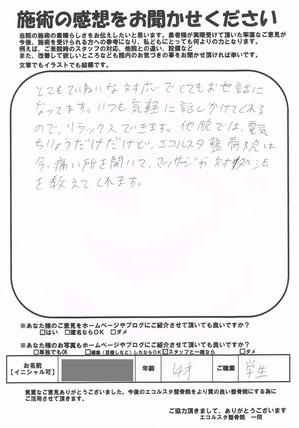 施術の感想をお聞かせください
当院の施術の素晴らしさをお伝えしたいと思います。患者様が実際受けて頂いた率直なご意見が
今後、施術を受けられる方への参考になり、私どもにとっても何よりの力となります。
例えば、ご来院時のスタッフの対応、他院との違い、設備など
また、改善して欲しいところなども院内のお気づきの事をお聞かせ頂ければ幸いです。
文章でもイラストでも結構です。
とてもていねいな対応でとてもお世話に
なってます。いつも気軽に話しかけてくれる
ので、リラックスできます。他院では、電気
ちりょうだけだけど、エコルスタ整骨院は
今、痛い所を聞いて、マッサージや対処法
を教えてくれます。
※あなた様のご意見をホームページやブログにご紹介させて頂いても良いですか？
☑はい □匿名ならOK □ダメ
※あなた様のお写真もホームページやブログにご紹介させて頂いても良いですか？
□単独でもOK □編集（目隠しなど）したならOK ☑スタッフと一緒なら □ダメ
お名前
【イニシャル可】
年齢
14才
ご職業
学生
貴重なご意見ありがとうございました。今後のエコルスタ整骨院をより良い整骨院にする為に
ご活用させて頂きます。
ご協力頂きまして、ありがとうございます
エコルスタ整骨院 一同